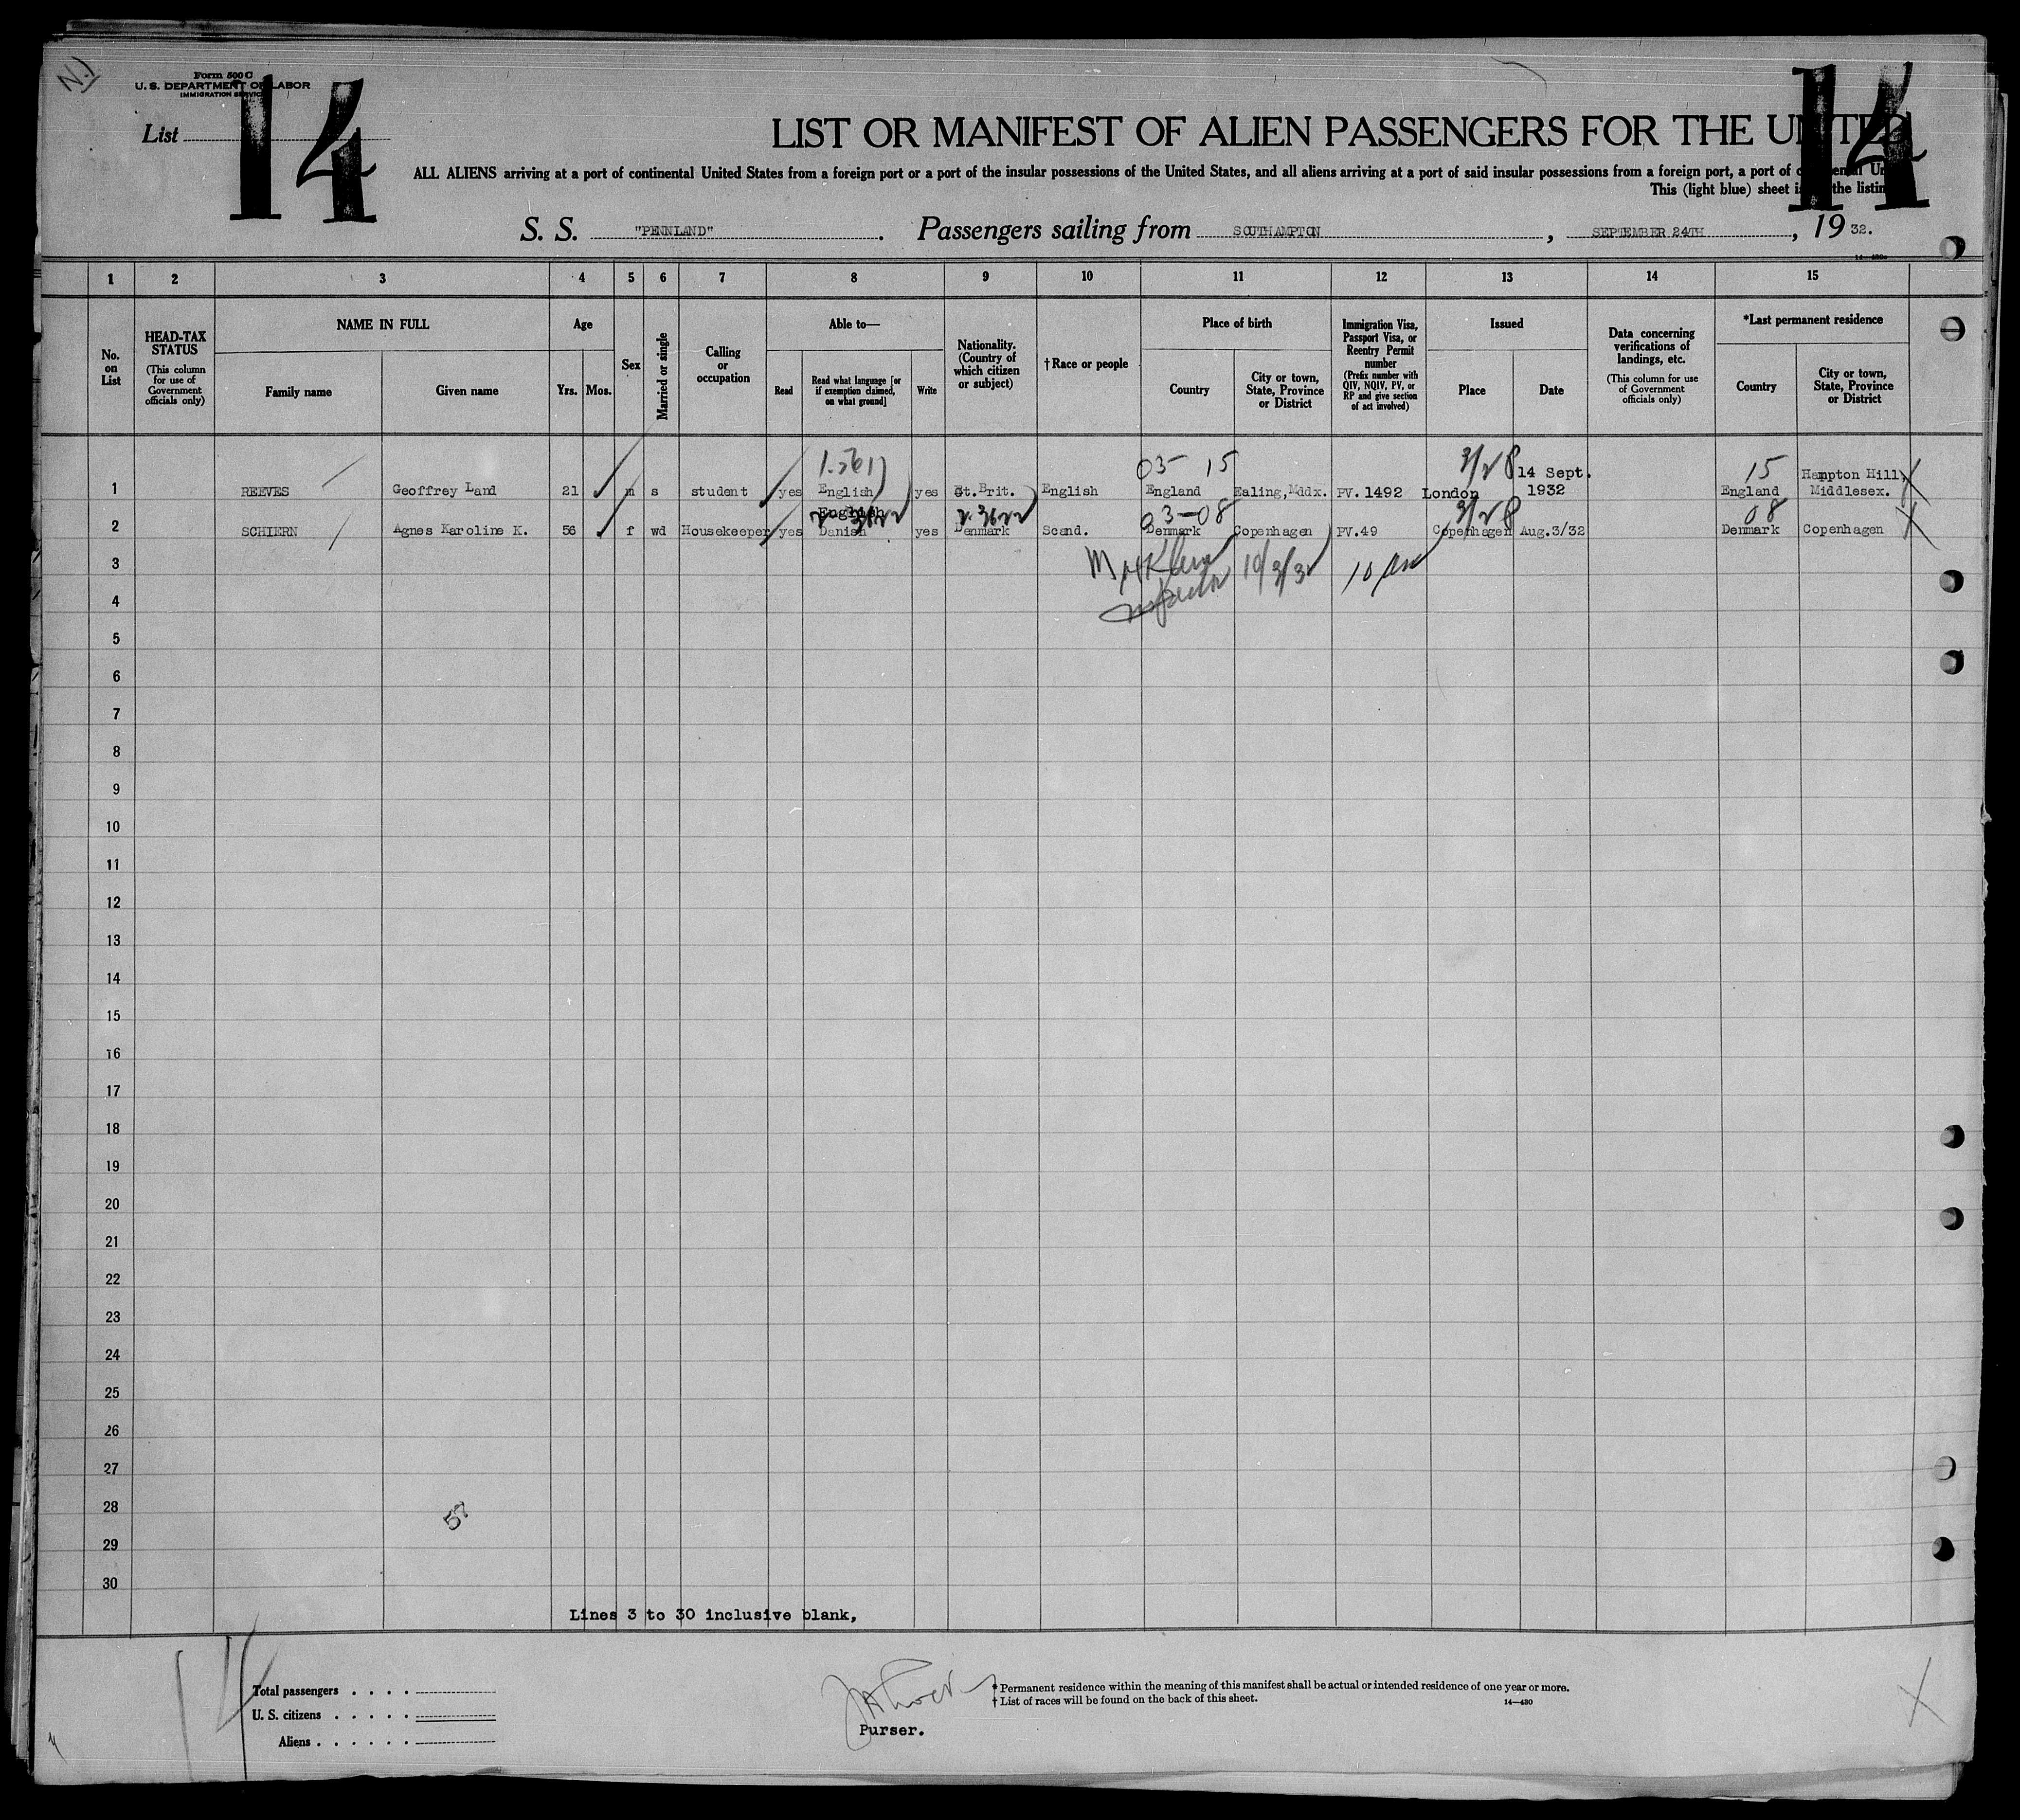 Form 500 C
U. S. DEPARTMENT OF LABOR
IMMIGRATION SERVICE
List
14
14
LIST OR MANIFEST OF ALIEN PASSENGERS FOR THE UNITED
ALL ALIENS arriving at a port of continental United States from a foreign port or a port of the insular possessions of the United States, and all aliens arriving at a port of said insular possessions from a foreign port, a port of continental Un
This (light blue) sheet is the listin
S. S. "PENNLAND". Passengers sailing from SOUTHAMPTON, SEPTEMBER 24TH, 19 32.
1 2 3 4 5 6 7 8 9 10 11 12 13 14 15
No. on List
HEAD-TAX STATUS (This column for use of Government officials only)
NAME IN FULL
Family name
Given name
Age
Yrs. Mos.
Sex
Married or single
Calling or occupation
Able to—
Read
Read what language [or if exemption claimed, on what ground]
Write
Nationality. (Country of which citizen or subject)
†Race or people
Place of birth
Country
City or town, State, Province or District
Immigration Visa, Passport Visa, or Reentry Permit number (Prefix number with QIV, NQIV, PV, or RP and give section of act involved)
Issued
Place
Date
Data concerning verifications of landings, etc. (This column for use of Government officials only)
*Last permanent residence
Country
City or town, State, Province or District
03 15
15
1 REEVES Geoffrey Land 21 m s student yes English yes Gt.Brit. English England Ealing, Mddx. PV. 1492 London 14 Sept. 1932 England Hampton Hill, Middlesex.
03-08
08
2 SCHIERN Agnes Karoline K. 56 f wd Housekeeper yes English Danish yes Denmark Scand. Denmark Copenhagen PV.49 Copenhagen Aug.3/32 Denmark Copenhagen
3
10/3/32
4
5
6
7
8
9
10
11
12
13
14
15
16
17
18
19
20
21
22
23
24
25
26
27
28
29
30
57
Lines 3 to 30 inclusive blank,
14
Total passengers . . . .
U. S. citizens . . . . .
Aliens . . . . . .
Purser.
* Permanent residence within the meaning of this manifest shall be actual or intended residence of one year or more.
† List of races will be found on the back of this sheet.
14—430